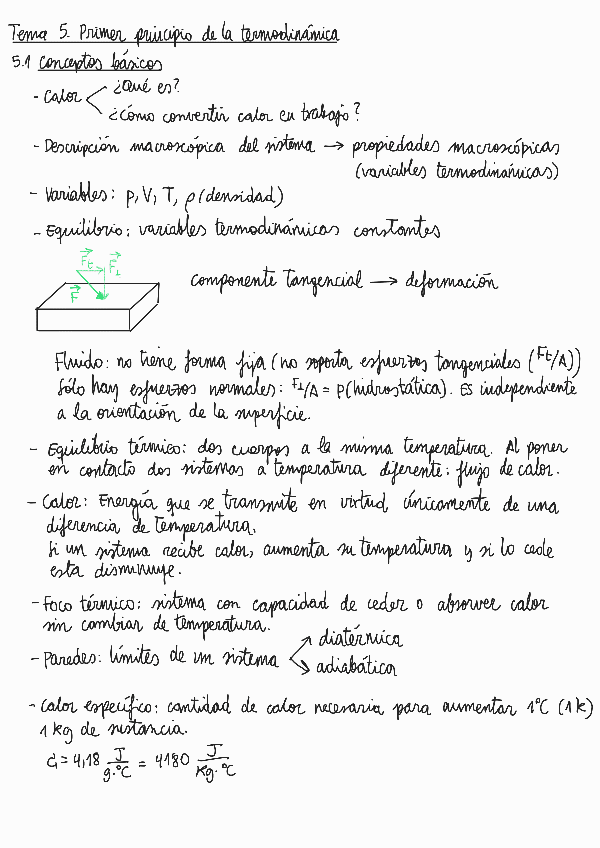 Tema 5. Primer principio de la termodinámica
5.1 Conceptos básicos
- Calor
¿Qué es?
¿Cómo convertir calor en trabajo?
- Descripción macroscópica del sistema → propiedades macroscópicas
(variables termodinámicas)
- Variables: p, V, T, ρ (densidad)
- Equilibrio: variables termodinámicas constantes
Ft F⊥
F
componente tangencial → deformación
Fluido: no tiene forma fija (no soporta esfuerzos tangenciales (Ft/A))
Sólo hay esfuerzos normales: F⊥/A = P (hidrostática). Es independiente
a la orientación de la superficie.
- Equilibrio térmico: dos cuerpos a la misma temperatura. Al poner
en contacto dos sistemas a temperatura diferente: flujo de calor.
- Calor: Energía que se transmite en virtud, únicamente de una
diferencia de temperatura.
Si un sistema recibe calor, aumenta su temperatura y si lo cede
esta disminuye.
- Foco térmico: sistema con capacidad de ceder o absorver calor
sin cambiar de temperatura.
- Paredes: límites de un sistema
diatérmica
adiabática
- Calor específico: cantidad de calor necesaria para aumentar 1°C (1k)
1 kg de sustancia.
= 4,18 J/g·°C = 4180 J/Kg·°C